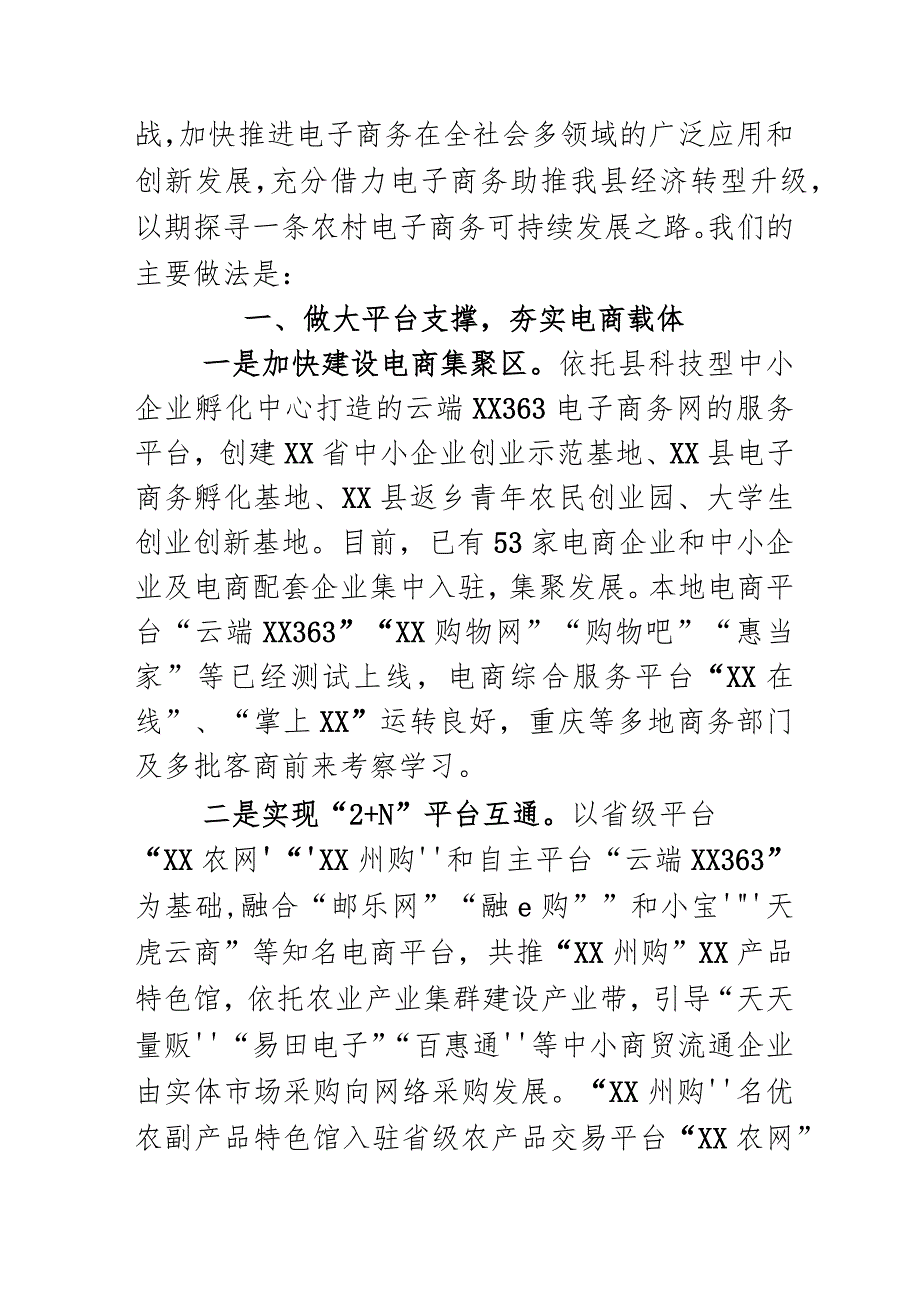 战,加快推进电子商务在全社会多领域的广泛应用和
创新发展,充分借力电子商务助推我县经济转型升级,
以期探寻一条农村电子商务可持续发展之路。我们的
主要做法是:
一、做大平台支撑，夯实电商载体
一是加快建设电商集聚区。依托县科技型中小
企业孵化中心打造的云端XX363电子商务网的服务
平台，创建XX省中小企业创业示范基地、XX县电子
商务孵化基地、XX县返乡青年农民创业园、大学生
创业创新基地。目前，已有53家电商企业和中小企
业及电商配套企业集中入驻，集聚发展。本地电商平
台“云端XX363”“XX购物网”“购物吧”“惠当
家”等已经测试上线，电商综合服务平台“XX在
线”、“掌上XX”运转良好，重庆等多地商务部门
及多批客商前来考察学习。
二是实现“2+N”平台互通。以省级平台
“XX农网'“'XX州购''和自主平台“云端XX363”
为基础,融合“邮乐网”“融e购””和小宝'"'天
虎云商”等知名电商平台，共推“XX州购”XX产品
特色馆，依托农业产业集群建设产业带，引导“天天
量贩''“易田电子”“百惠通''等中小商贸流通企业
由实体市场采购向网络采购发展。“XX州购''名优
农副产品特色馆入驻省级农产品交易平台“XX农网”